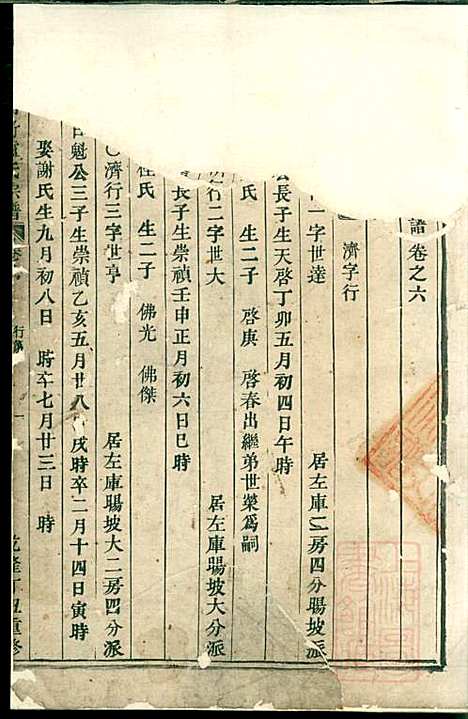 譜卷之六
濟字行
一字世達 居左庫二房四分暘坡派
長子生天啓丁卯五月初四日午時
氏 生二子 啓庚 啓春出繼弟世榮爲嗣
行二字世大 居左庫暘坡大分派
長子生崇禎壬申正月初六日巳時
杜氏 生二子 佛光 佛傑
○濟行三字世亨 居左庫暘坡大二房四分派
魁公三子生崇禎乙亥五月廿八 戌時卒二月十四日寅時
娶謝氏生九月初八日 時卒七月廿三日 時
氏宗譜 行 一 乾隆丁丑重修